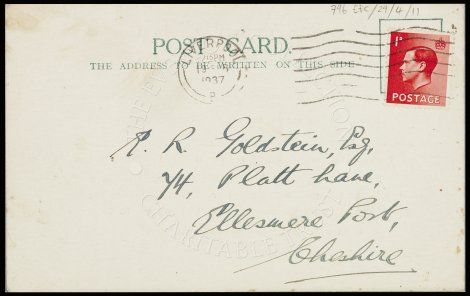 796 EFC/29/4/11
POST CARD.
THE ADDRESS TO BE WRITTEN ON THIS SIDE
LIVERPOOL
1937
P
1D
POSTAGE
E. R. Goldstein, Esq,
74, Platt Lane,
Ellesmere Port,
Cheshire
CHARITABLE